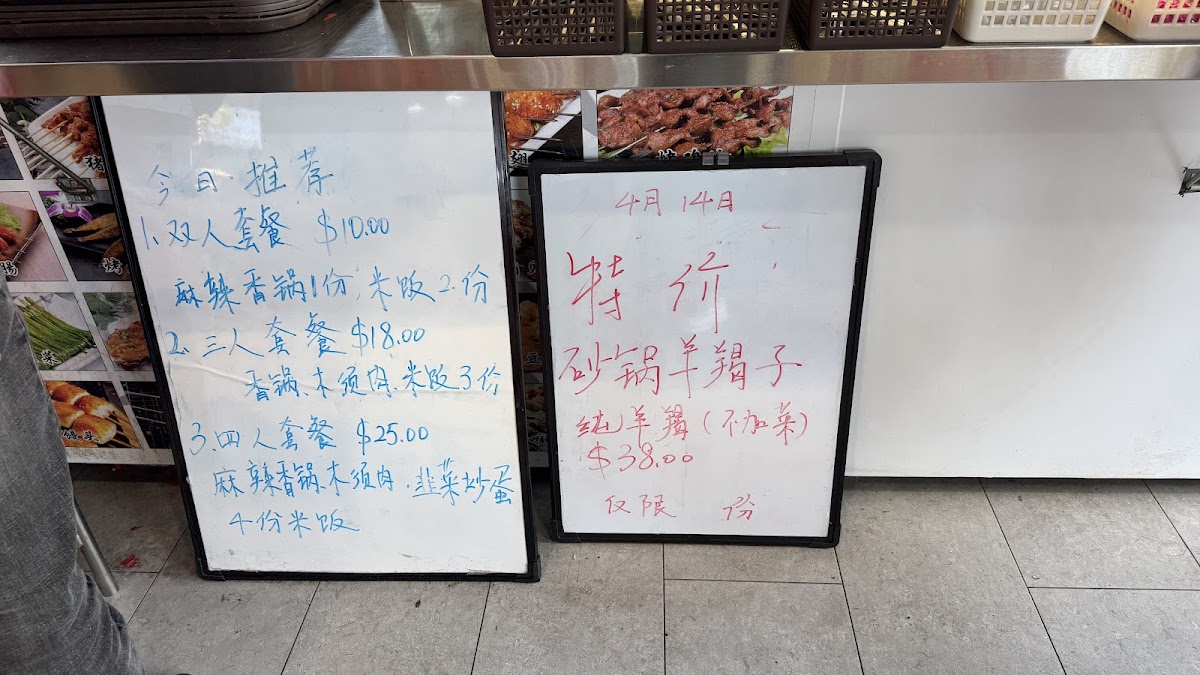 今日推荐
1.双人套餐 $10.00
麻辣香锅1份,米饭2份
2.三人套餐 $18.00
香锅.木须肉.米饭3份
3.四人套餐 $25.00
麻辣香锅.木须肉.韭菜炒蛋
4份米饭
4月14日
特价
砂锅羊羯子
纯羊羯(不加菜)
$38.00
仅限 份
翅
猪
肠
烤
菜
豆